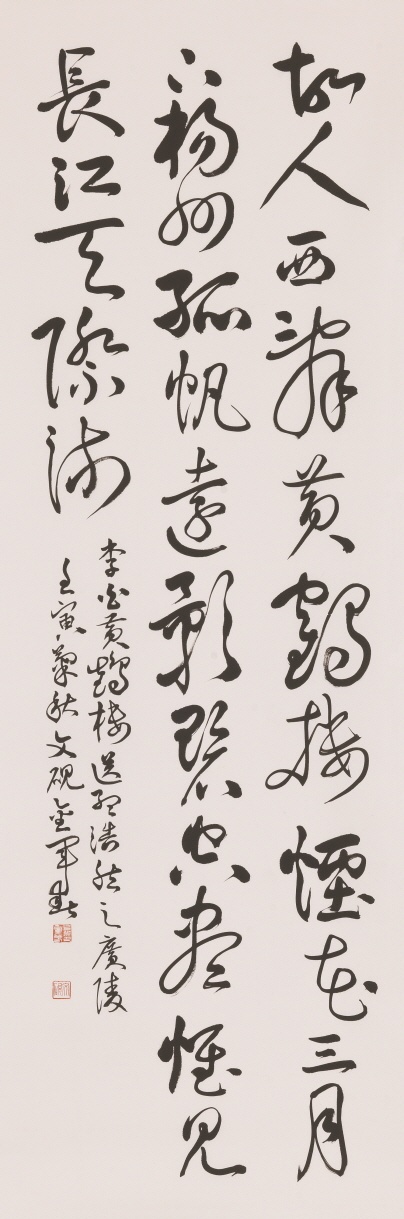 故人西辭黃鶴樓煙花三月
下楊州孤帆遠影碧空盡惟見
長江天際流
李白黃鶴樓送孟浩然之廣陵
壬寅菊秋文硯金軍